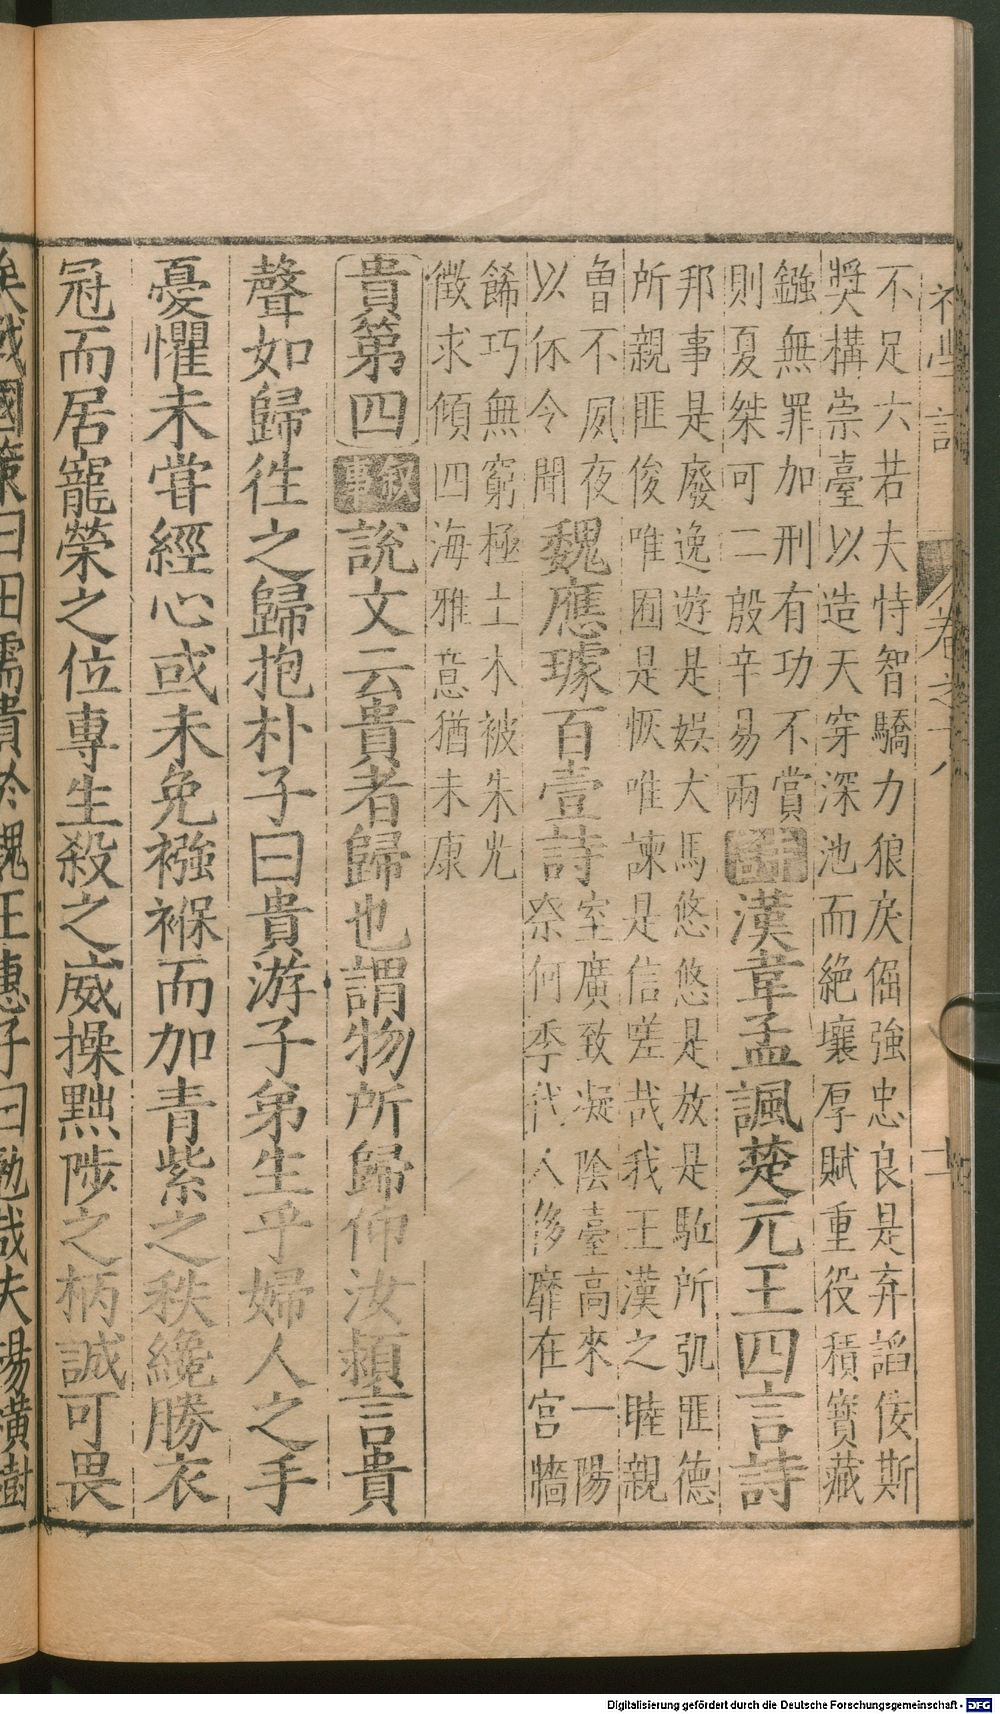 不足六若夫恃智驕力狼戾倔強忠良是弃謟佞斯
奬構崇臺以造天穿深池而絶壤厚賦重役積寳藏
鏹無罪加刑有功不賞
則夏桀可二殷辛易兩
詩漢韋孟諷楚元王四言詩
邦事是廢逸遊是娛犬馬悠悠是放是駈所弘匪德
所親匪俊唯囿是恢唯諫是信嗟哉我王漢之睦親
曾不夙夜
以休令聞
魏應璩百壹詩
室廣致凝陰臺高來一陽
奈何季代人侈靡在宫牆
餙巧無窮極土木被朱光
徵求傾四海雅意猶未康
貴第四
叙事
說文云貴者歸也謂物所歸仰汝潁言貴
聲如歸往之歸抱朴子曰貴游子弟生乎婦人之手
憂懼未甞經心或未免襁褓而加青紫之秩纔勝衣
冠而居寵榮之位專生殺之威操黜陟之柄誠可畏
矣戰國策曰田需貴於魏王惠子曰勉哉夫楊橫樹
卷之十八
Digitalisierung gefördert durch die Deutsche Forschungsgemeinschaft - DFG